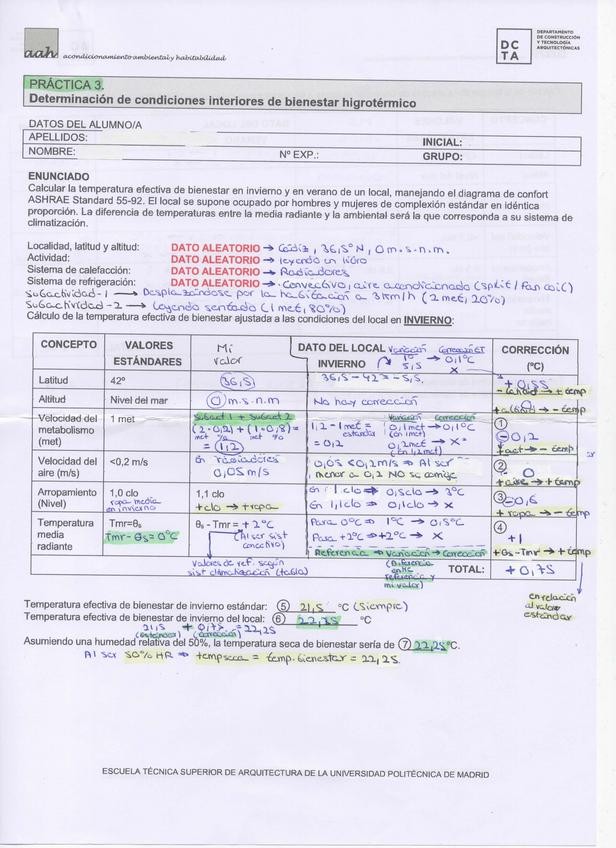 aah acondicionamiento ambiental y habitabilidad
DC
TA
DEPARTAMENTO
DE CONSTRUCCIÓN
Y TECNOLOGÍA
ARQUITECTÓNICAS
PRÁCTICA 3.
Determinación de condiciones interiores de bienestar higrotérmico
DATOS DEL ALUMNO/A
APELLIDOS: INICIAL:
NOMBRE: Nº EXP.: GRUPO:
ENUNCIADO
Calcular la temperatura efectiva de bienestar en invierno y en verano de un local, manejando el diagrama de confort
ASHRAE Standard 55-92. El local se supone ocupado por hombres y mujeres de complexión estándar en idéntica
proporción. La diferencia de temperaturas entre la media radiante y la ambiental será la que corresponda a su sistema de
climatización.
Localidad, latitud y altitud: DATO ALEATORIO → Cádiz, 36,5º N, 0 m.s.n.m.
Actividad: DATO ALEATORIO → leyendo un libro
Sistema de calefacción: DATO ALEATORIO → Radiadores
Sistema de refrigeración: DATO ALEATORIO → Convectivo, aire acondicionado (split/fan coil)
Subactividad-1 → Desplazándose por la habitación a 3km/h (2 met, 20%)
Subactividad-2 → Leyendo sentado (1 met, 80%)
Cálculo de la temperatura efectiva de bienestar ajustada a las condiciones del local en INVIERNO:
CONCEPTO VALORES ESTÁNDARES Mi valor DATO DEL LOCAL INVIERNO Variación Corrección ET CORRECCIÓN (ºC)
1º → 0,1ºC
5,5 x
Latitud 42º 36,5 36,5 - 42 = -5,5 + 0,55
- latitud → + temp
Altitud Nivel del mar 0 m.s.n.m No hay corrección 0
+ altitud → - temp
Velocidad del metabolismo (met) 1 met Subact 1 + Subact 2
(2·0,2) + (1·0,8) =
met % met %
= 1,2
1,2 - 1 met = estándar
= 0,2
Variación Corrección
0,1met → 0,1ºC
(en 1met)
0,2met → x
(en 1,2met)
① -0,2
+ act → - temp
Velocidad del aire (m/s) <0,2 m/s En radiadores
0,05 m/s
0,05 < 0,2 m/s → Al ser
menor a 0,2 NO se corrige
② 0
+ aire → + temp
Arropamiento (Nivel) 1,0 clo
ropa media en invierno
1,1 clo
+ clo → + ropa
En 1 clo → 0,5clo → 3ºC
En 1,1clo → 0,1clo → x
③ -0,6
+ ropa → - temp
Temperatura media radiante Tmr=θs
Tmr - θs = 0ºC
θs - Tmr = + 2ºC
(Al ser sist convectivo)
Para 0ºC → 1ºC → 0,5ºC
Para +2ºC → +2ºC → x
Referencia → Variación → Corrección
④ +1
+ θs - Tmr → + temp
Valores de ref. según
sist climatización (tabla)
(Diferencia
entre
referencia y
mi valor)
TOTAL: + 0,75
en relación
al valor
estándar
Temperatura efectiva de bienestar de invierno estándar: ⑤ 21,5 ºC (Siempre)
Temperatura efectiva de bienestar de invierno del local: ⑥ 22,25 ºC
21,5 + 0,75 = 22,25
(estándar) (corrección)
Asumiendo una humedad relativa del 50%, la temperatura seca de bienestar sería de ⑦ 22,25 ºC.
Al ser 50% HR → temp seca = temp. bienestar = 22,25
ESCUELA TÉCNICA SUPERIOR DE ARQUITECTURA DE LA UNIVERSIDAD POLITÉCNICA DE MADRID